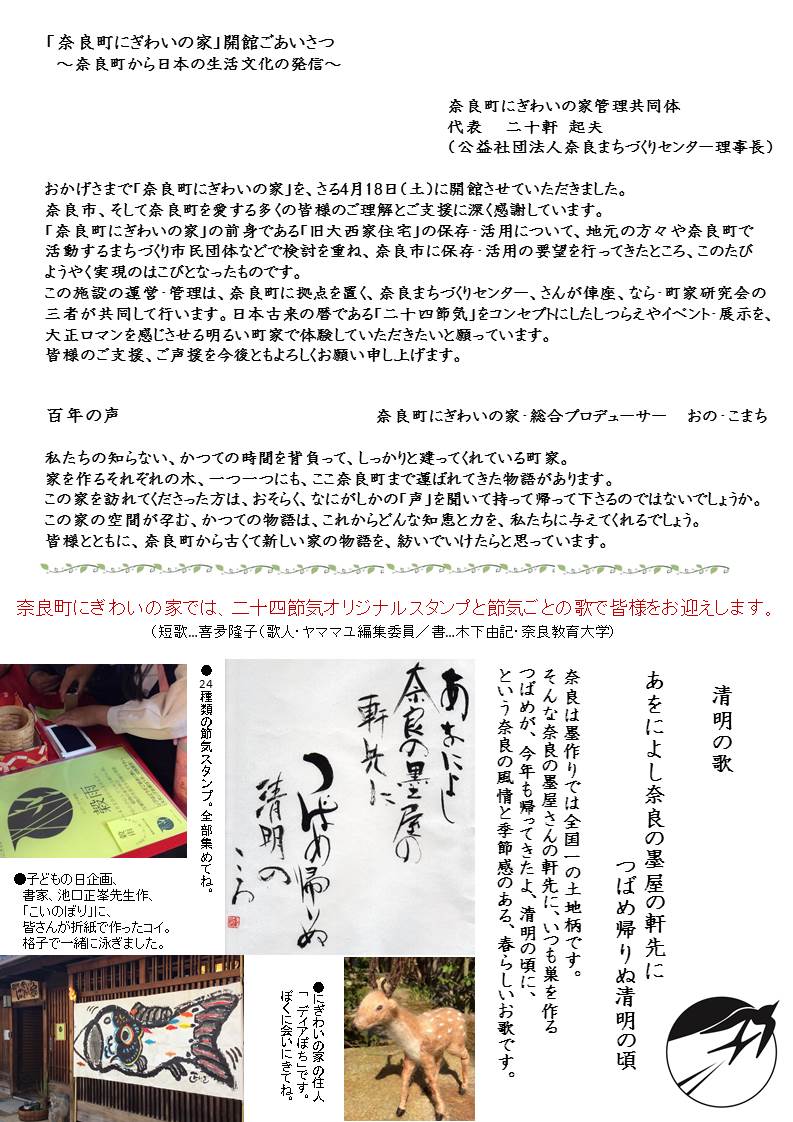 「奈良町にぎわいの家」開館ごあいさつ
～奈良町から日本の生活文化の発信～
奈良町にぎわいの家管理共同体
代表 二十軒 起夫
（公益社団法人奈良まちづくりセンター理事長）
おかげさまで「奈良町にぎわいの家」を、さる4月18日（土）に開館させていただきました。
奈良市、そして奈良町を愛する多くの皆様のご理解とご支援に深く感謝しています。
「奈良町にぎわいの家」の前身である「旧大西家住宅」の保存・活用について、地元の方々や奈良町で
活動するまちづくり市民団体などで検討を重ね、奈良市に保存・活用の要望を行ってきたところ、このたび
ようやく実現のはこびとなったものです。
この施設の運営・管理は、奈良町に拠点を置く、奈良まちづくりセンター、さんが俥座、なら・町家研究会の
三者が共同して行います。日本古来の暦である「二十四節気」をコンセプトにしたしつらえやイベント・展示を、
大正ロマンを感じさせる明るい町家で体験していただきたいと願っています。
皆様のご支援、ご声援を今後ともよろしくお願い申し上げます。
百年の声 奈良町にぎわいの家・総合プロデューサー おの・こまち
私たちの知らない、かつての時間を背負って、しっかりと建ってくれている町家。
家を作るそれぞれの木、一つ一つにも、ここ奈良町まで運ばれてきた物語があります。
この家を訪れてくださった方は、おそらく、なにがしかの「声」を聞いて持って帰って下さるのではないでしょうか。
この家の空間が孕む、かつての物語は、これからどんな知恵と力を、私たちに与えてくれるでしょう。
皆様とともに、奈良町から古くて新しい家の物語を、紡いでいけたらと思っています。
奈良町にぎわいの家では、二十四節気オリジナルスタンプと節気ごとの歌で皆様をお迎えします。
（短歌…喜多隆子（歌人・ヤママユ編集委員／書…木下由記・奈良教育大学）
清明の歌
あをによし奈良の墨屋の軒先に
つばめ帰りぬ清明の頃
奈良は墨作りでは全国一の土地柄です。
そんな奈良の墨屋さんの軒先に、いつも巣を作る
つばめが、今年も帰ってきたよ、清明の頃に、
という奈良の風情と季節感のある、春らしいお歌です。
あをによし
奈良の墨屋の
軒先に
つばめ帰りぬ
清明の
ころ
●24種類の節気スタンプ。全部集めてね。
穀雨
●子どもの日企画、
書家、池口正峯先生作、
「こいのぼり」に、
皆さんが折紙で作ったコイ。
格子で一緒に泳ぎました。
●にぎわいの家の住人
「ディアぽち」です。
ぼくに会いにきてね。